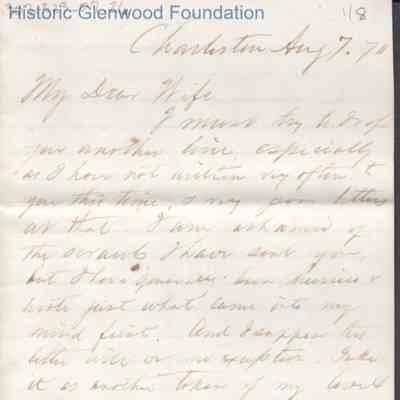 Historic Glenwood Foundation
1/8
Charleston Aug 7. 70
My Dear Wife
I must try to drop
you another line, especially
as I have not written very often to
you this time, & very poor letters
at that. I am ashamed of
the scrawls I have sent you,
but I have generally been hurried &
wrote just what came into my
mind first. And I suppose this
letter will be no exception. Take
it as another token of my love &